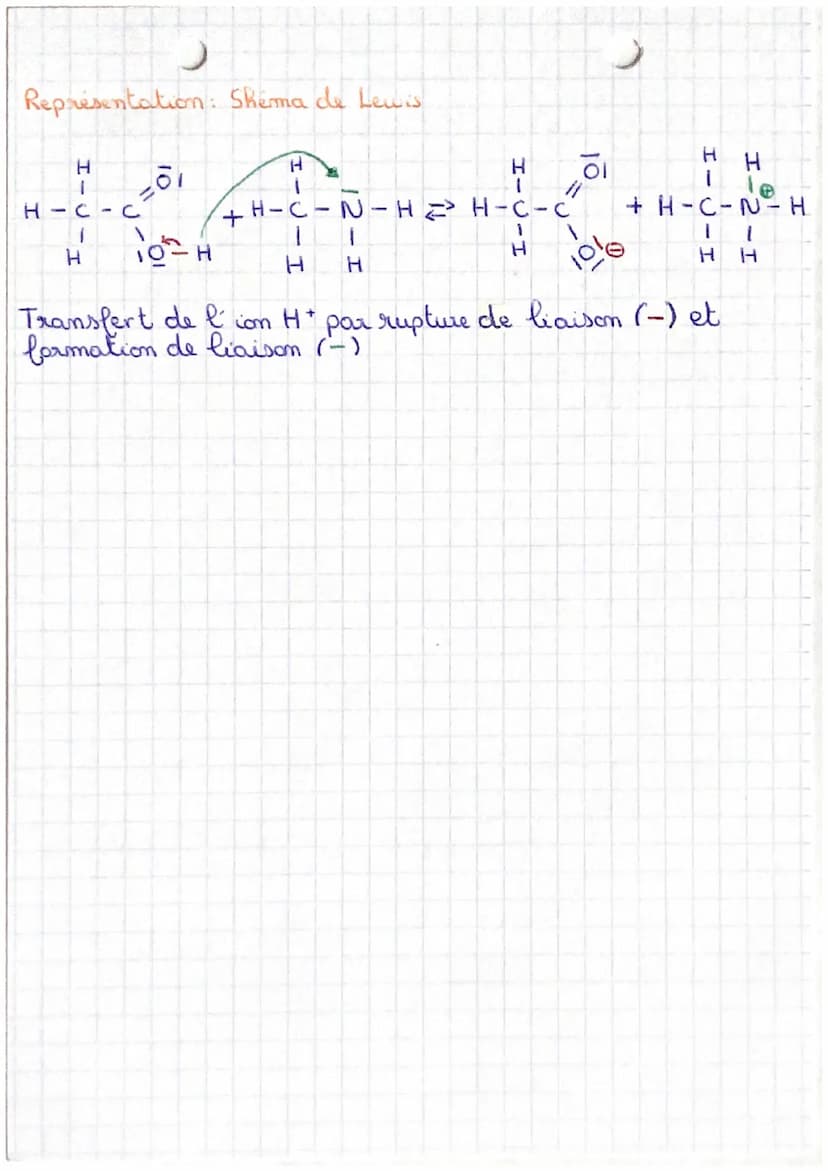 Représentation: Skéma de Lewis
H H H H H
H - C - C = O + H - C - N - H ⇌ H - C - C = O + H - C - N⊕ - H
H O - H H H H O⊖ H H
Transfert de l'ion H+ par rupture de liaison (-) et
formation de liaison (-)